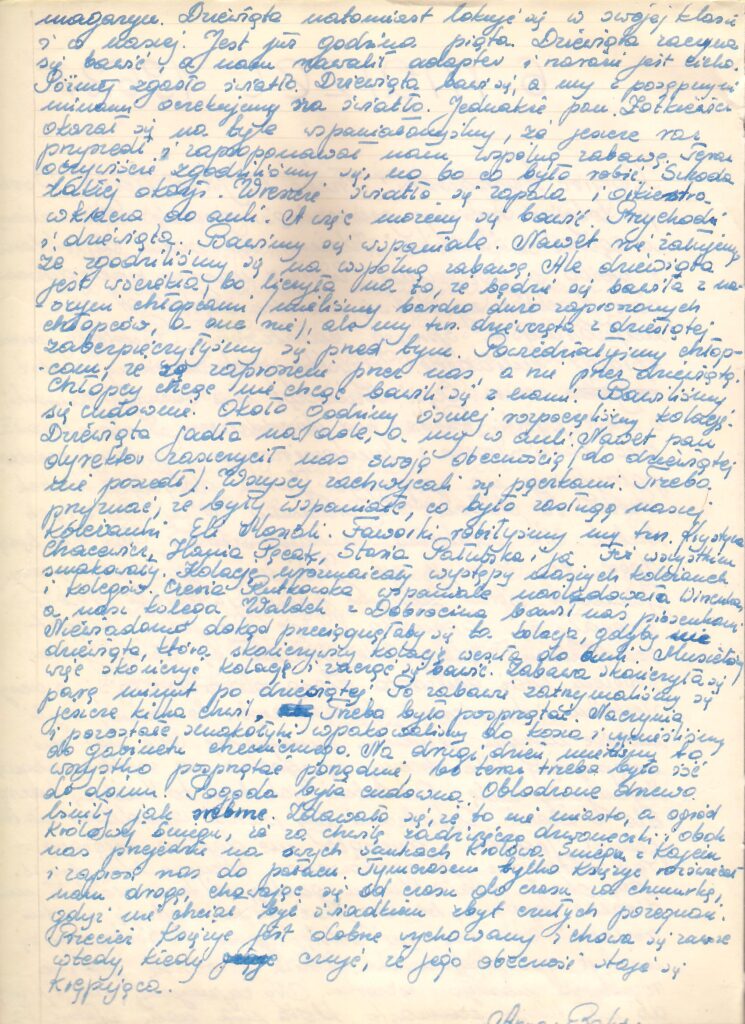 magazynce. Dziewiąta natomiast lokuje się w swojej klasie
i w naszej. Jest już godzina piąta. Dziewiąta zaczyna
się bawić a nam nawalił adapter i narazie jest cicho.
Później zgasło światło. Dziewiąta bawi się, a my z posępnymi
minami oczekujemy na światło. Jednakże pan
okazał się na tyle wspaniałomyślny, że jeszcze raz
przyszedł i zaproponował nam wspólną zabawę. Teraz
oczywiście zgodziliśmy się, no bo co było robić. Szkoda
takiej okazji. Wreszcie światło się zapala i orkiestra
wkracza do auli. A więc możemy się bawić. Przychodzi
i dziewiąta. Bawimy się wspaniale. Nawet nie żałujemy
że zgodziliśmy się na wspólną zabawę. Ale dziewiąta
jest wściekła, bo liczyła na to, że będzie się bawiła z na-
szymi chłopcami (mieliśmy bardzo dużo zaproszonych
chłopców, a one nie), ale my tzn. dziewczęta z dziesiątej
zabezpieczyłyśmy się przed tym. Powiedziałyśmy chłop-
com, że są zaproszeni przez nas, a nie przez dziewiątą.
Chłopcy chcąc nie chcąc bawili się z nami. Bawiliśmy
się cudownie. Około godziny ósmej rozpoczęliśmy kolację.
Dziewiąta jadła na dole, a my w auli. Nawet pan
dyrektor zaszczycił nas swoją obecnością (do dziewiątej
nie poszedł). Wszyscy zachwycali się pączkami. Trzeba
przyznać, że były wspaniałe, co było zasługą naszej
koleżanki Eli. Faworki robiłyśmy my tzn. Krystyna
Hania Pęcak, Stasia i ja. Też wszystkim
smakowały. Kolację urozmaicały występy naszych koleżanek
i kolegów. Czesia Rutkowska wspaniale naśladowała
a nasz kolega Waldek z Dobrocina bawił nas piosenkami.
Niewiadomo dokąd przeciągnęłaby się ta kolacja, gdyby nie
dziewiąta, która skończywszy kolację weszła do auli. Musieliśmy
więc skończyć kolację i zacząć się bawić. Zabawa skończyła się
parę minut po dziesiątej. Po zabawie zatrzymaliśmy się
jeszcze kilka chwil. Trzeba było posprzątać. Naczynia
i pozostałe smakołyki wpakowaliśmy do kosza i wynieśliśmy
do gabinetu chemicznego. Na drugi dzień mieliśmy to
wszystko posprzątać porządnie, bo teraz trzeba było iść
do domu. Pogoda była cudowna. Oblodzone drzewa
lśniły jak srebrne. Zdawało się, że to nie miasto, a ogród
Królowej Śniegu, że za chwilę zadźwięczą dzwoneczki i obok
nas przejedzie na swych sankach Królowa Śniegu z Kajem
i zaprosi nas do pałacu. Tymczasem tylko księżyc rozświetlał
nam drogę, chowając się od czasu do czasu za chmurkę,
gdyż nie chciał być świadkiem zbyt czułych pożegnań.
Przecież księżyc jest dobrze wychowany i chowa się zawsze
wtedy, kiedy czuje, że jego obecność staje się
krępująca.